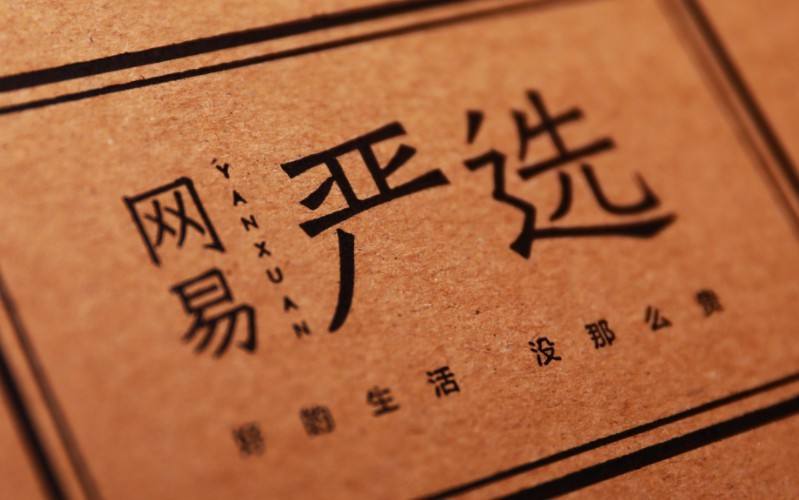 网易
YANXUAN
严选
好的生活 没那么贵